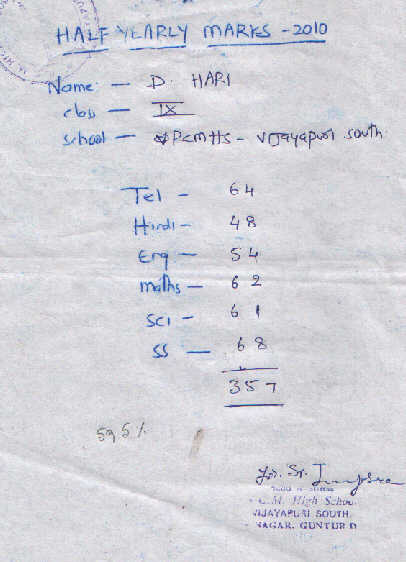 HALF YEARLY MARKS - 2010
Name: - D. HARI
class - IX
school - PCMHS - Vijayapuri south
Tel - 64
Hindi - 48
Eng - 54
maths - 62
sci - 61
SS - 68
357
59.5%
C.M. High School
VIJAYAPURI SOUTH,
NAGAR, GUNTUR D